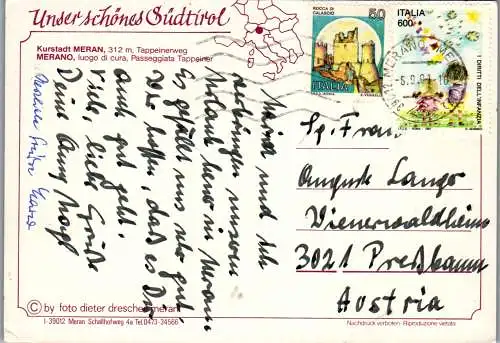 Unser schönes Südtirol
Kurstadt MERAN, 312 m, Tappeinerweg
MERANO, luogo di cura, Passeggiata Tappeiner
ROCCA DI
CALASCIO
50
ITALIA
ITALIA
600
I DIRITTI DELL'INFANZIA
MERANO
und ich
verbringen unseren
Urlaub heuer in Meran.
Es gefällt uns sehr gut.
Wir hoffen, daß es Dir
auch gut geht.
Viele, liebe Grüße
Deine
Grüße
Auguste Lango
Wienerwaldheim
3021 Preßbaum
Austria
© by foto dieter drescher meran
I-39012 Meran Schallhofweg 4a Tel.0473-34566
Nachdruck verboten · Riproduzione vietata